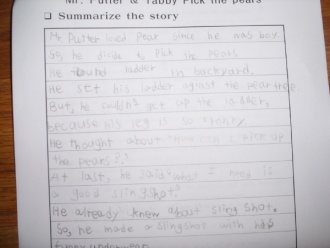 Mr. Putter & Tabby Pick the pears
❑ Summarize the story
Mr. Putter loved Pear since he was boy.
So, he dicide to Pick the pears
He found ladder in backyard.
He set his ladder against the pear tree.
But, he couldn't get up the ladder,
because his leg is so
He thought about "How can I pick up
the pears?"
At last, he said "What I need is
a good slingshot"
He already knew about slingshot.
So, he made a slingshot with his
funny underwear.